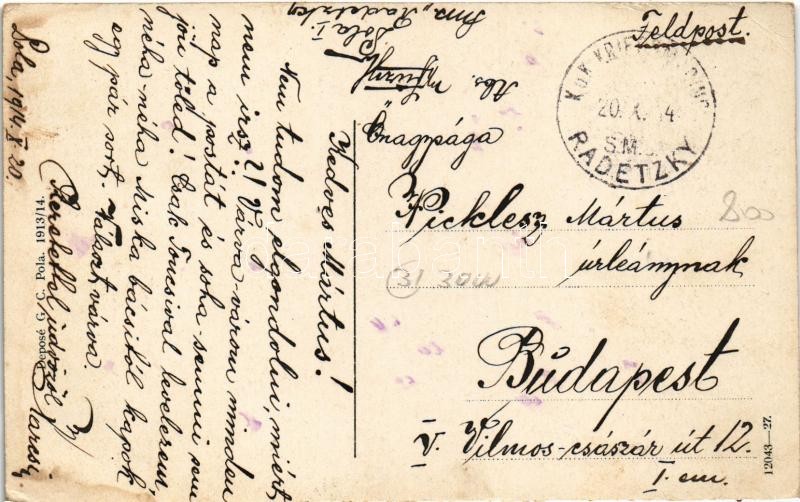 Feldpost.
K.U.K. KRIEGSMARINE
20. X. 14
S.M.S.
RADETZKY
Pola I.
Abs.
Őnagysága
Picklesz Mártus
úrleánynak
Budapest
V. Vilmos-császár út 12.
I. em.
Kedves Mártus!
Nem tudom elgondolni, miért
nem irsz?! Várva-várom minden
nap a postát és soha semmi sem
jön tőled! Csak Toncsival levelezem,
néha-néha Miska bácsitól kapok
egy pár sort. Választ várva.
Kézcsókkal üdvözöl
Pola, 1914. X. 20.
Deposé G. C. Pola. 1913/14.
12043—27.
31 3000
800